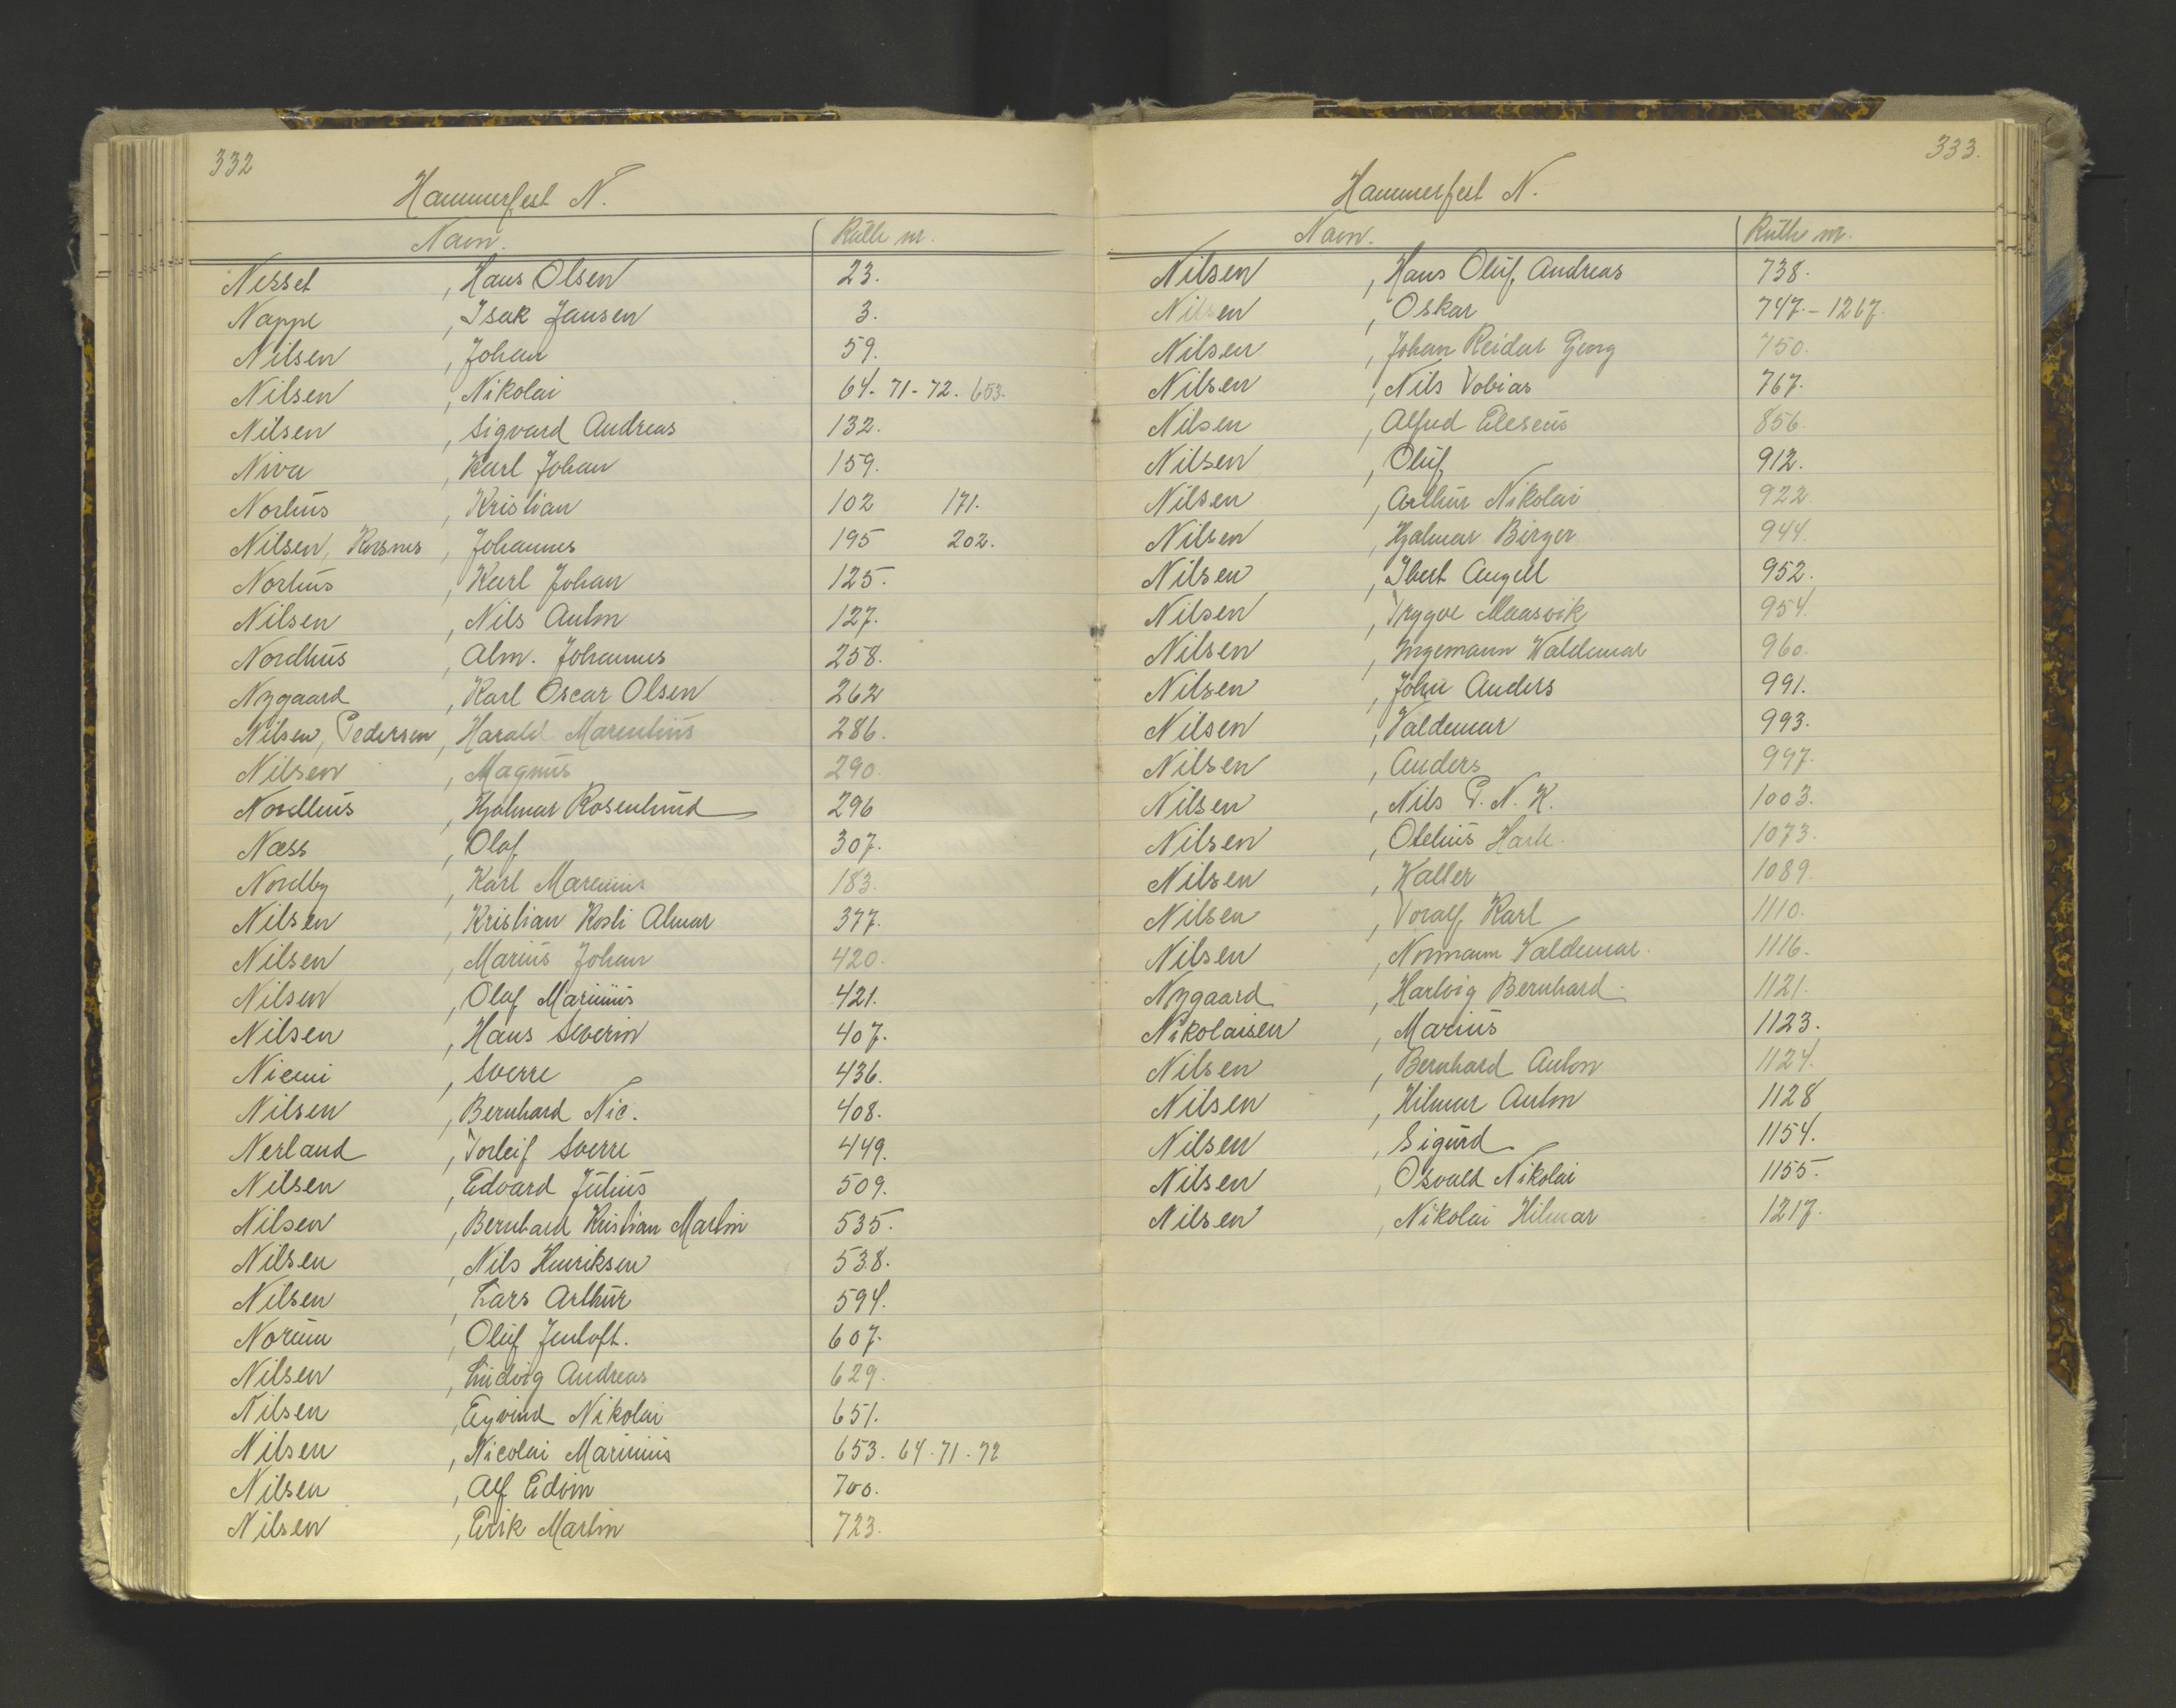 332
Hammerfest N.
Navn. Rulle nr.
Nesset, Hans Olsen 23.
Nappe, Isak Jansen 3.
Nilsen, Johan 59.
Nilsen, Nikolai 64-71-72. 653.
Nilsen, Sigvard Andreas 132.
Niva, Karl Johan 159.
Norhus, Kristian 102 171.
Nilsen, Korsnes, Johannes 195 202.
Norhus, Karl Johan 125.
Nilsen, Nils Anton 127.
Nordhus, Alm. Johannes 258.
Nygaard, Karl Oscar Olsen 262
Nilsen, Pedersen, Harald Marentius 286.
Nilsen, Magnus 290.
Nordhus, Hjalmar Rosenlund 296
Næss, Olaf 307.
Nordby, Karl Marenius 183.
Nilsen, Kristian Almar 377.
Nilsen, Marius Johan 420.
Nilsen, Olaf Marinius 421.
Nilsen, Hans Severin 407.
Niemi, Sverre 436.
Nilsen, Bernhard Nic. 408.
Nerland, Torleif Sverre 449.
Nilsen, Edvard Julius 509.
Nilsen, Bernhard Kristian Martin 535.
Nilsen, Nils Henriksen 538.
Nilsen, Lars Arthur 594.
Norum, Oluf Jentoft. 607.
Nilsen, Ludvig Andreas 629.
Nilsen, Eyvind Nikolai 651.
Nilsen, Nicolai Marinius 653. 64-71-72
Nilsen, Alf Edvin 700.
Nilsen, Erik Martin 723.
333.
Hammerfest N.
Navn. Rulle nr.
Nilsen, Hans Oluf Andreas 738.
Nilsen, Oskar 747.-1267.
Nilsen, Johan Reidar Georg 750.
Nilsen, Nils Tobias 767.
Nilsen, Alfred Eleseus 856.
Nilsen, Oluf 912.
Nilsen, Arthur Nikolai 922.
Nilsen, Hjalmar Birger 944.
Nilsen, Ibert Angell 952.
Nilsen, Trygve Maasvik 954.
Nilsen, Ingemann Waldemar 960.
Nilsen, John Anders 991.
Nilsen, Valdemar 993.
Nilsen, Anders 997.
Nilsen, Nils P. N. K. 1003.
Nilsen, Otelius 1073.
Nilsen, Walter 1089.
Nilsen, Toralf Karl 1110.
Nilsen, Normann Valdemar. 1116.
Nygaard, Hartvig Bernhard. 1121.
Nikolaisen, Marius 1123.
Nilsen, Bernhard Anton 1124.
Nilsen, Hilmar Anton 1128
Nilsen, Sigurd 1154.
Nilsen, Osvald Nikolai 1155.
Nilsen, Nikolai Hilmar 1217.